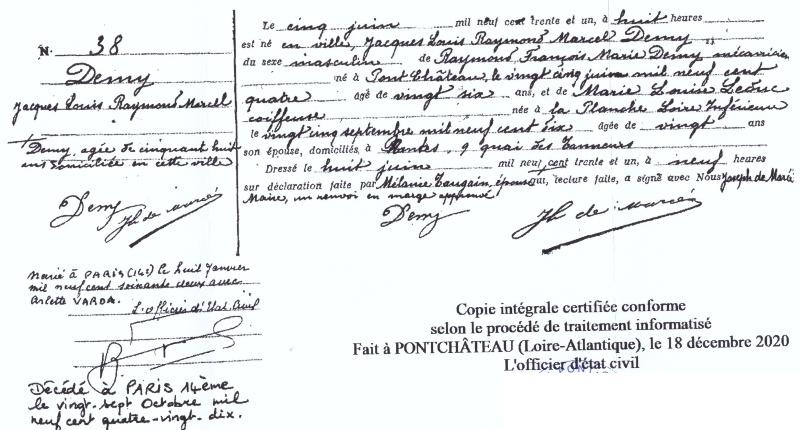 N. 38
Demy
Jacques Louis Raymond Marcel
+ Demy, agée de cinquant huit
ans domiciliée en cette ville
Demy Jh de
Le cinq juin mil neuf cent trente et un, à huit heures
est né en ville, Jacques Louis Raymond Marcel Demy
du sexe masculin de Raymond François Marie Demy mécanicien
né à Pont Château, le vingt cinq juin mil neuf cent
quatre âgé de vingt six ans, et de Marie Louise Leduc
coiffeuse née à la Planche Loire Inférieure
le vingt cinq septembre mil neuf cent dix âgée de vingt ans
son épouse, domiciliés, à Nantes, 9 quai des Tanneurs
Dressé le huit juin mil neuf cent trente et un, à neuf heures
sur déclaration faite par Mélanie épouse qui, lecture faite, a signé avec Nous Joseph de
Maire, un renvoi en marge approuvé
Demy Jh de
Marié à PARIS (14e) le huit Janvier
mil neuf cent soixante deux avec
Arlette VARDA.
L'officier d'Etat Civil
Décédé à PARIS 14ème
le vingt-sept Octobre mil
neuf cent quatre-vingt-dix.
Copie intégrale certifiée conforme
selon le procédé de traitement informatisé
Fait à PONTCHÂTEAU (Loire-Atlantique), le 18 décembre 2020
L'officier d'état civil